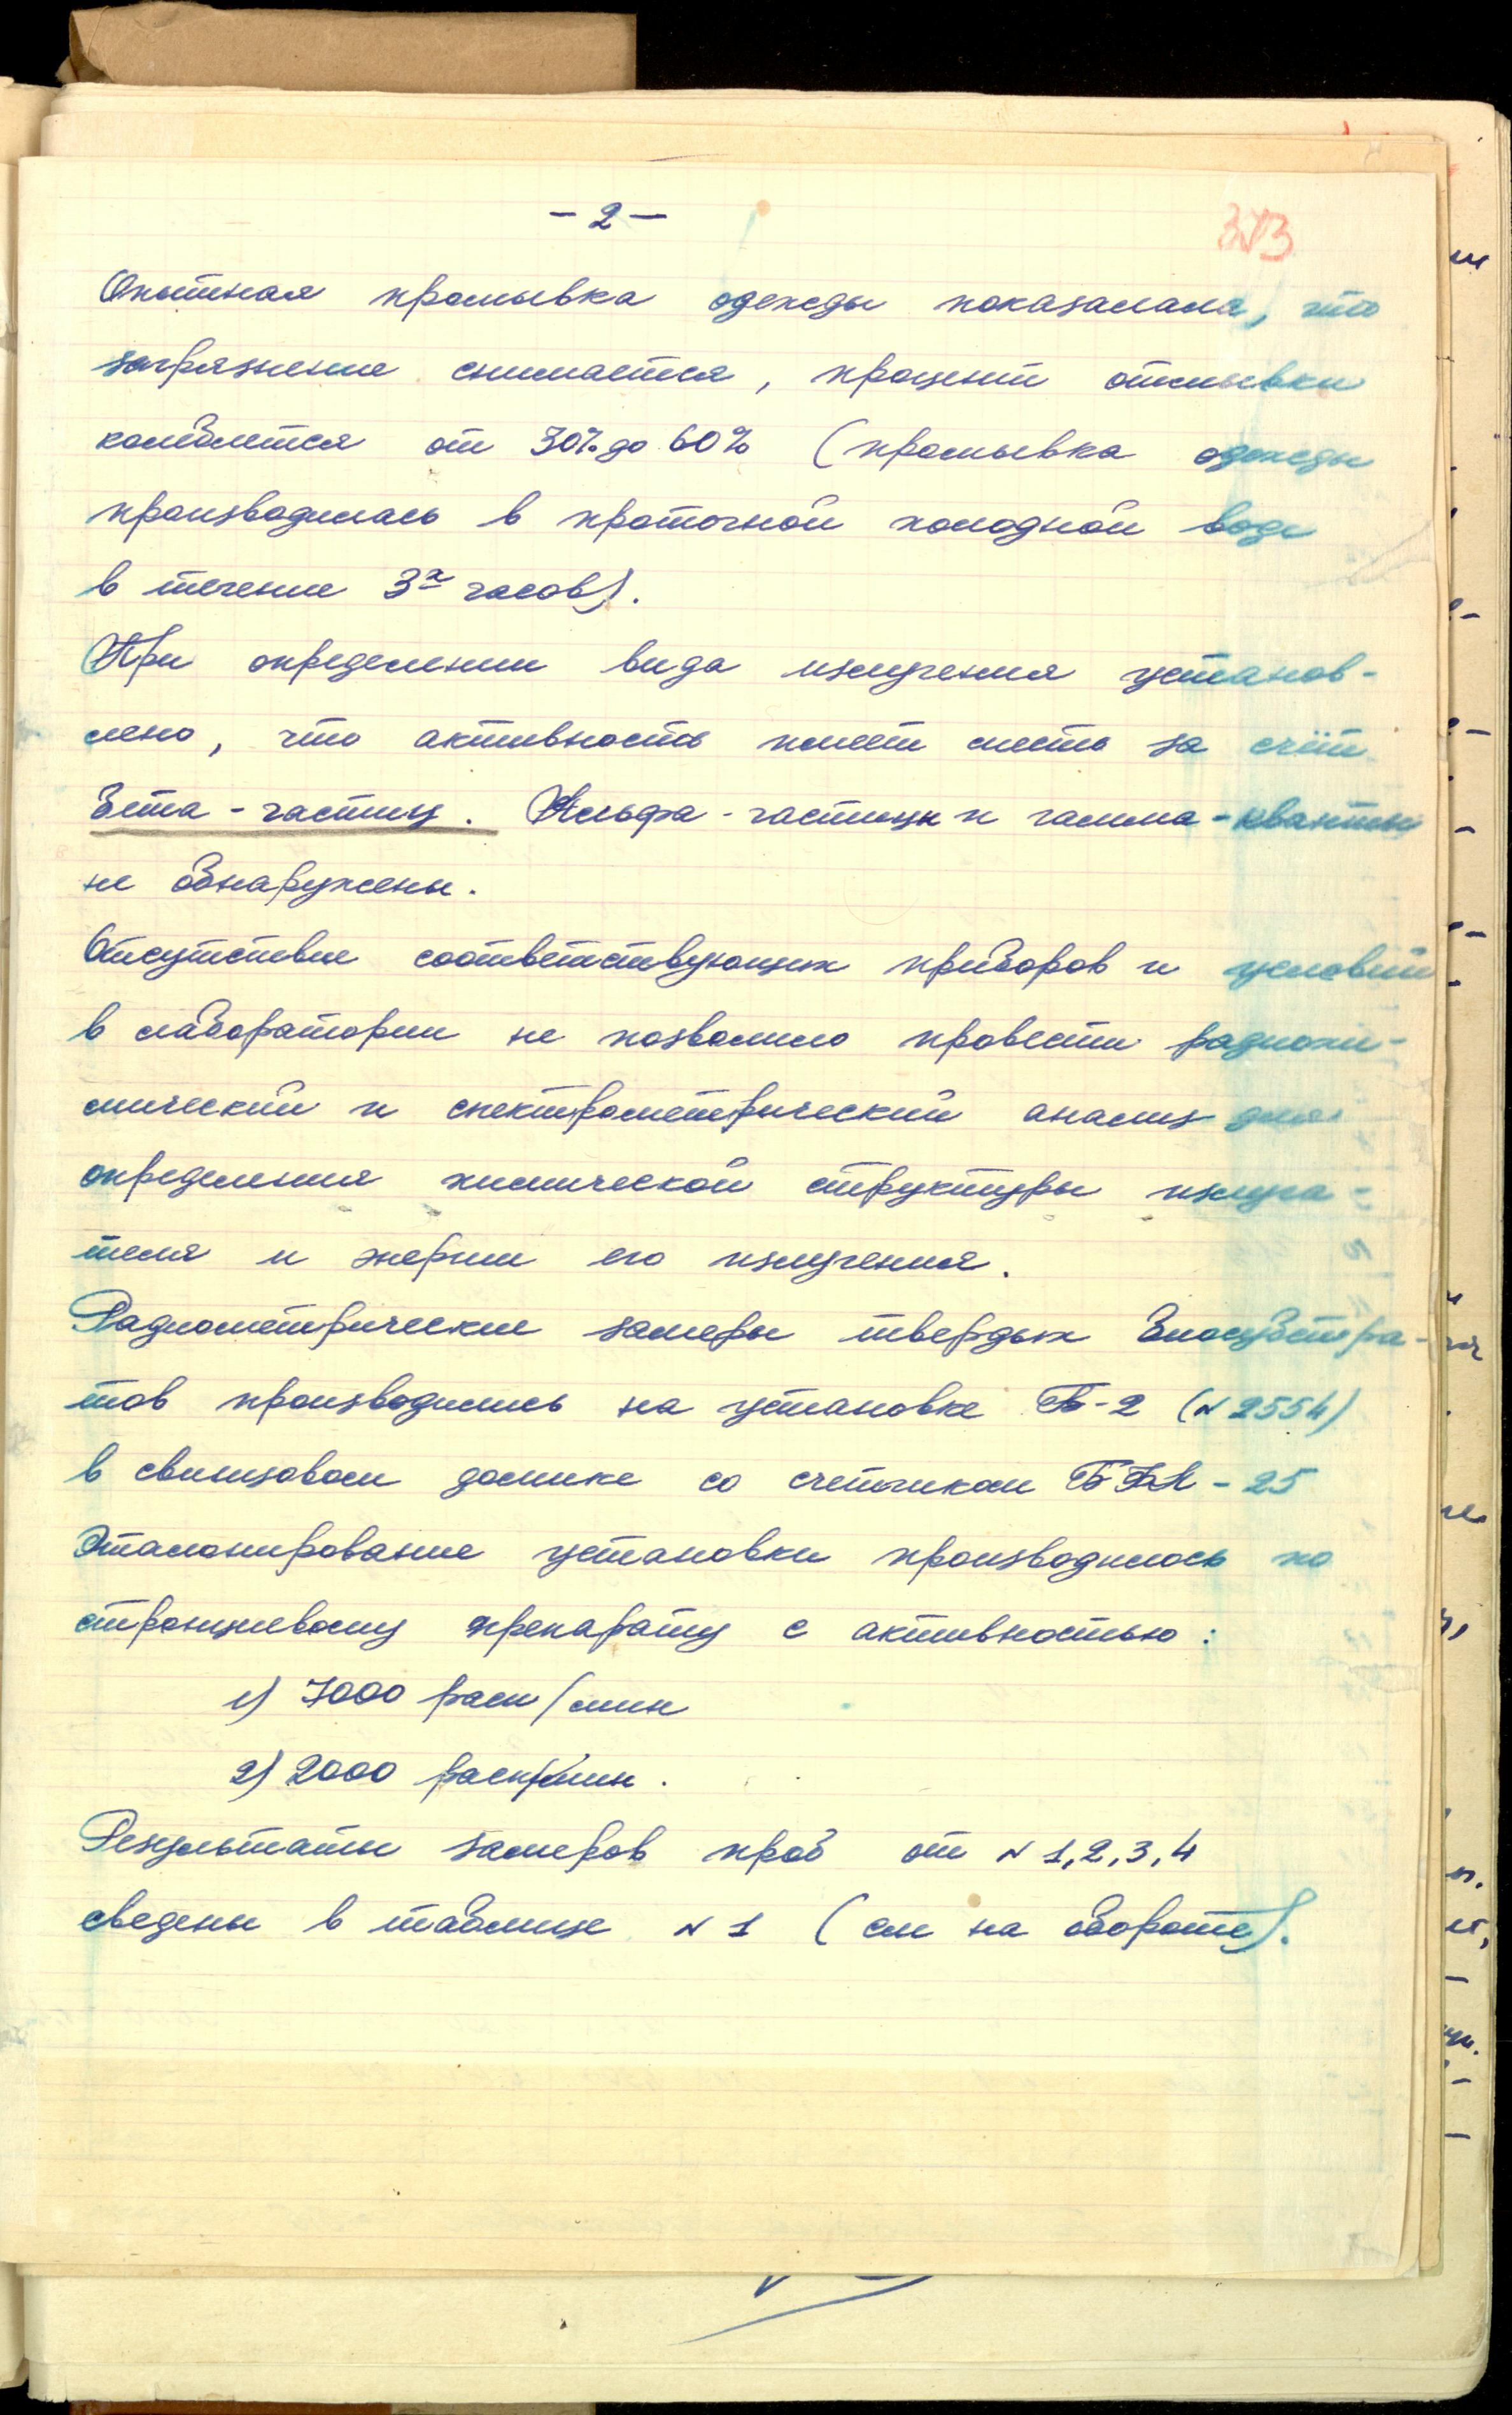 - 2 -
373
Опытная промывка одежды показалала, что
загрязнение снимается, процент отмывки
колеблется от 30% до 60% (промывка одежды
производилась в проточной холодной воде
в течение 3х часов).
При определении вида излучения установ-
лено, что активность имеет место за счёт
бета-частиц. Альфа-частицы и гамма-кванты
не обнаружены.
Отсутствие соответствующих приборов и условий
в лаборатории не позволило провести радиохи-
мический и спектрометрический анализ для
определения химической структуры излуча-
теля и энергии его излучения.
Радиометрические замеры твердых биосубстра-
тов производились на установке Б-2 (№ 2554)
в свинцовом домике со счетчиком БФЛ-25
Эталонирование установки производилось по
стронциевому препарату с активностью:
1) 7000 расп/мин
2) 2000 расп/мин.
Результаты замеров проб от № 1, 2, 3, 4
сведены в таблице № 1 (см на обороте).